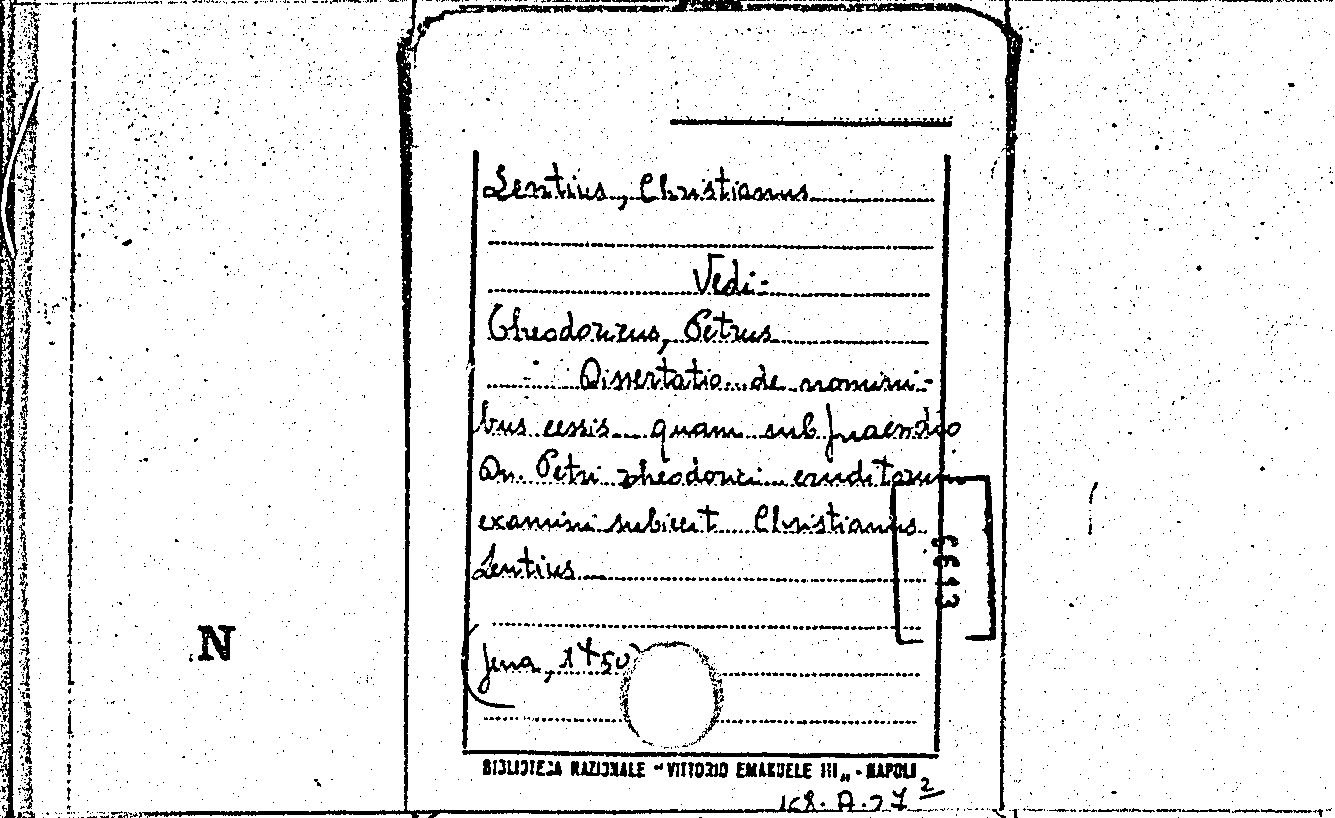 Lentius, Christianus
Vedi:
Theodoricus, Petrus
Dissertatio de nomini-
bus cessis quam sub praesidio
Dn. Petri Theodorici eruditorum
examini subiicit Christianus
Lentius
6613
N
Jena, 1750
BIBLIOTECA NAZIONALE "VITTORIO EMANUELE III" - NAPOLI
168. A. 27²